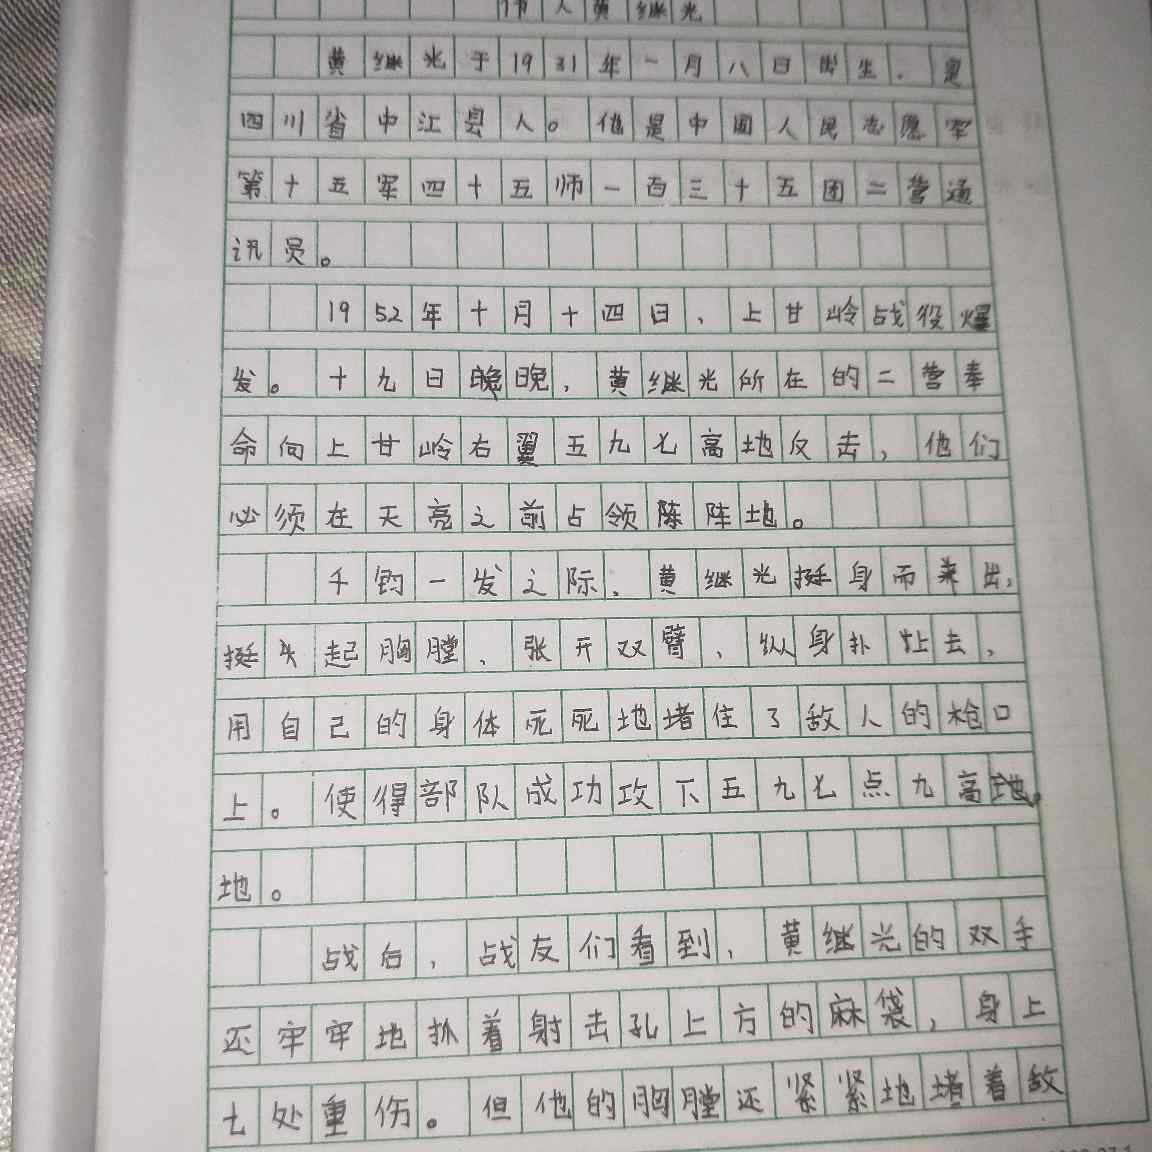 伟人黄继光
黄继光于1931年一月八日出生,是
四川省中江县人。他是中国人民志愿军
第十五军四十五师一百三十五团二营通
讯员。
1952年十月十四日,上甘岭战役爆
发。十九日晚晚,黄继光所在的二营奉
命向上甘岭右翼五九七高地反击,他们
必须在天亮之前占领陈阵地。
千钧一发之际,黄继光挺身而来出,
挺头起胸膛,张开双臂,纵身扑上去,
用自己的身体死死地堵住了敌人的枪口
上。使得部队成功攻下五九七点九高地。
地。
战后,战友们看到,黄继光的双手
还牢牢地抓着射击孔上方的麻袋,身上
七处重伤。但他的胸膛还紧紧地堵着敌